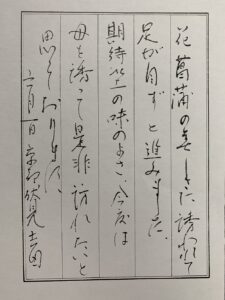 花菖蒲の美しさに誘われて
足が自ずと進みました。
期待以上の味のよさ、今度は
母を誘って是非訪れたいと
思っております。
六月一日 京都伏見